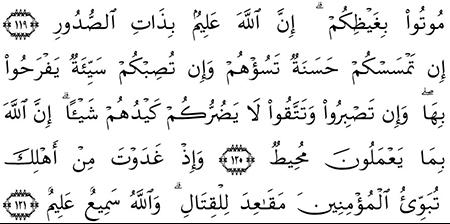 مُوتُوا۟ بِغَيْظِكُمْ ۗ إِنَّ ٱللَّهَ عَلِيمٌۢ بِذَاتِ ٱلصُّدُورِ ﴿١١٩﴾
إِن تَمْسَسْكُمْ حَسَنَةٌ تَسُؤْهُمْ وَإِن تُصِبْكُمْ سَيِّئَةٌ يَفْرَحُوا۟
بِهَا ۖ وَإِن تَصْبِرُوا۟ وَتَتَّقُوا۟ لَا يَضُرُّكُمْ كَيْدُهُمْ شَيْـًٔا ۗ إِنَّ ٱللَّهَ
بِمَا يَعْمَلُونَ مُحِيطٌ ﴿١٢٠﴾ وَإِذْ غَدَوْتَ مِنْ أَهْلِكَ
تُبَوِّئُ ٱلْمُؤْمِنِينَ مَقَـٰعِدَ لِلْقِتَالِ ۗ وَٱللَّهُ سَمِيعٌ عَلِيمٌ ﴿١٢١﴾